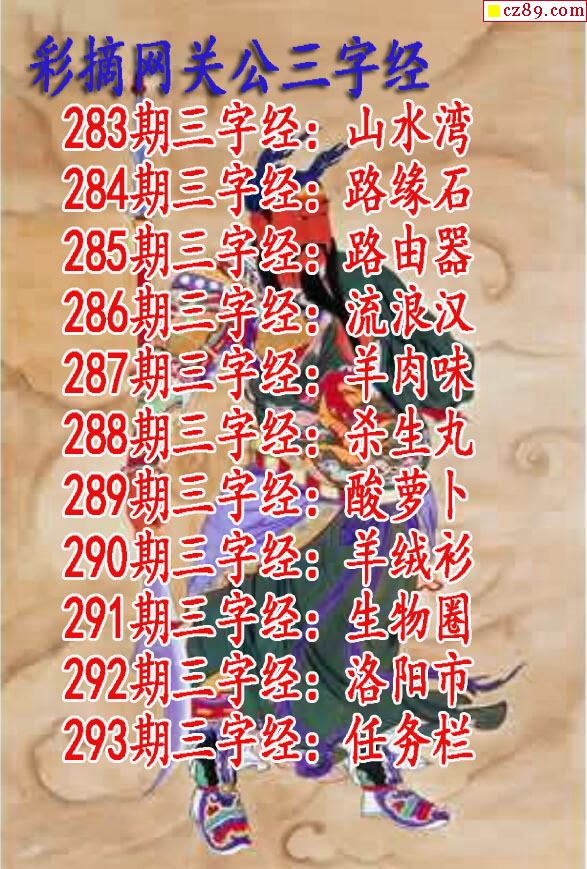 cz89.com
彩摘网关公三字经
283期三字经：山水湾
284期三字经：路缘石
285期三字经：路由器
286期三字经：流浪汉
287期三字经：羊肉味
288期三字经：杀生丸
289期三字经：酸萝卜
290期三字经：羊绒衫
291期三字经：生物圈
292期三字经：洛阳市
293期三字经：任务栏